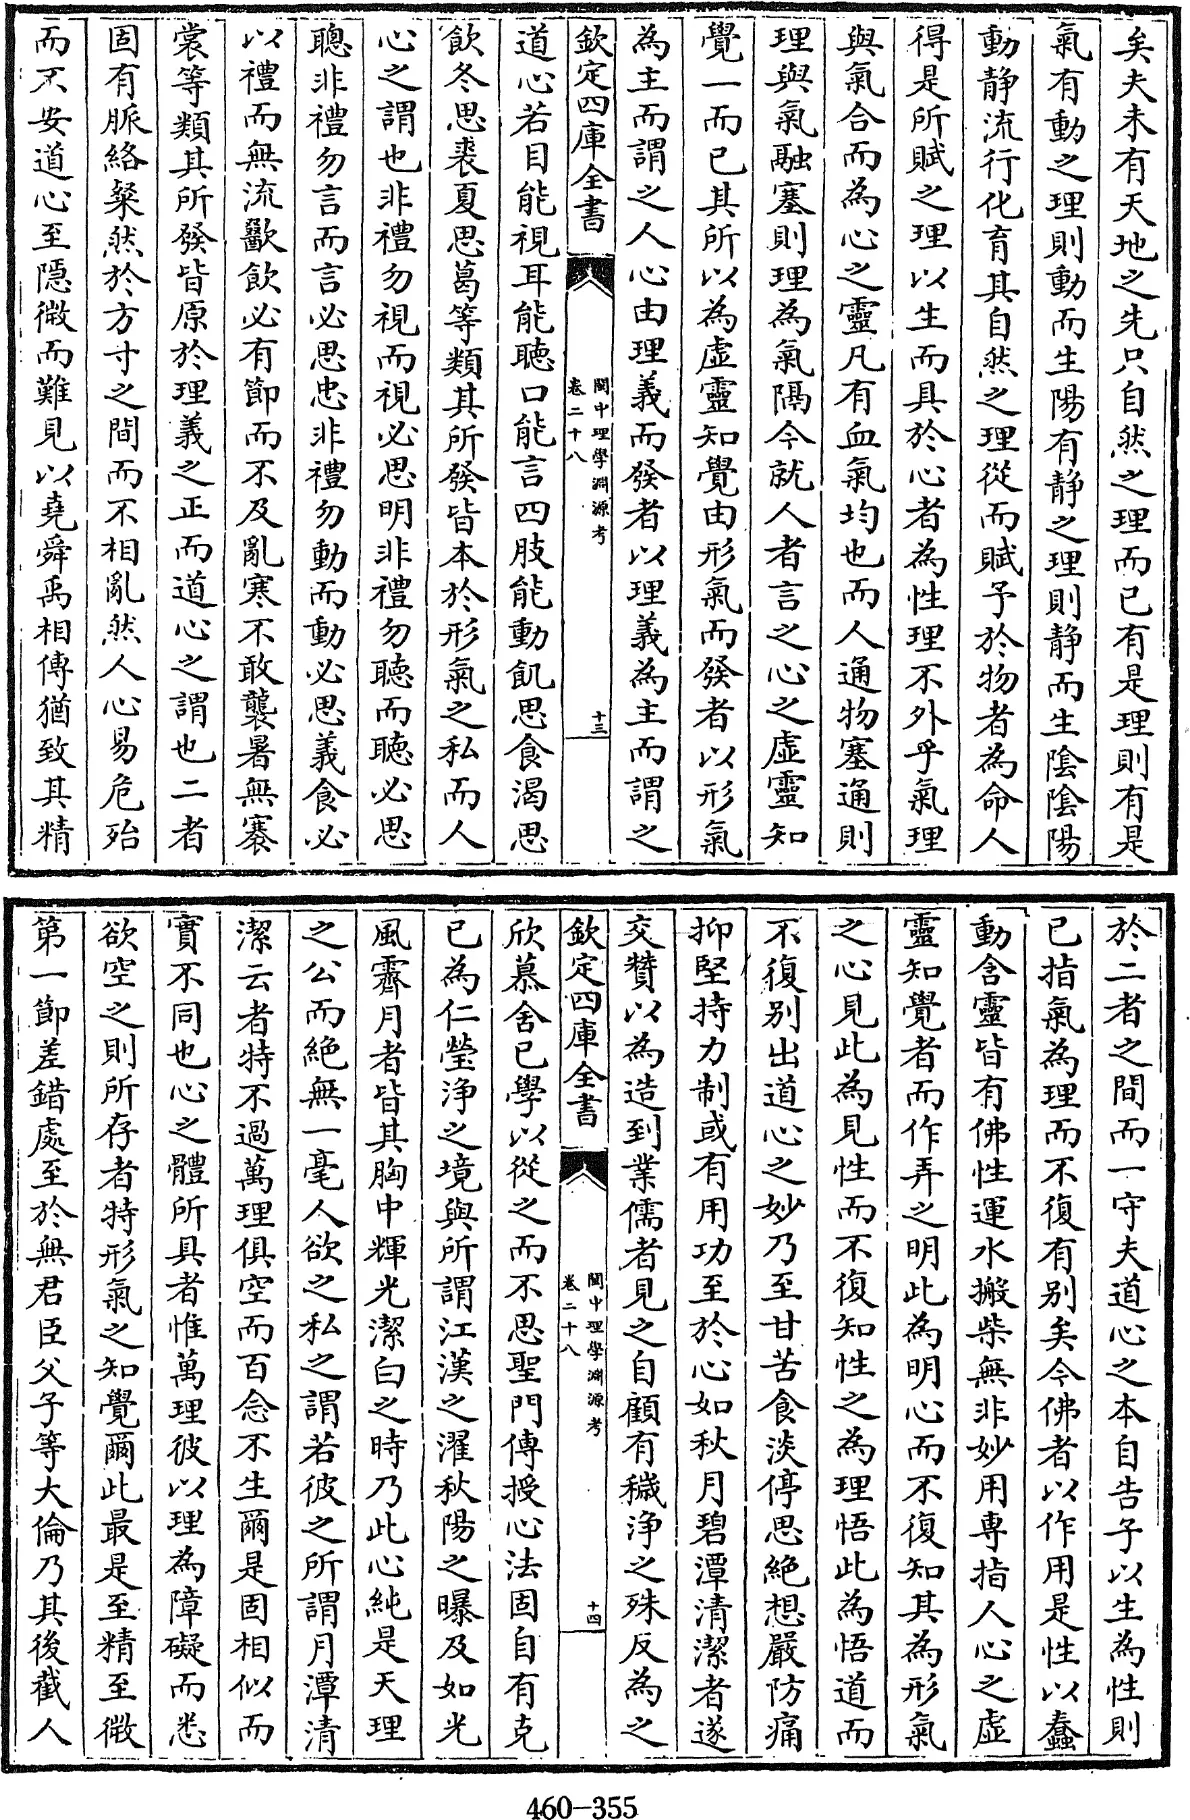 矣夫未有天地之先只自然之理而已有是理則有是
氣有動之理則動而生陽有静之理則静而生陰陰陽
動静流行化育其自然之理從而賦予於物者為命人
得是所賦之理以生而具於心者為性理不外乎氣理
與氣合而為心之靈凡有血氣均也而人通物塞通則
理與氣融塞則理為氣隔今就人者言之心之虛靈知
覺一而已其所以為虛靈知覺由形氣而發者以形氣
為主而謂之人心由理義而發者以理義為主而謂之
欽定四庫全書
閩中理學淵源考
卷二十八
十三
道心若目能視耳能聽口能言四肢能動飢思食渴思
飲冬思裘夏思葛等類其所發皆本於形氣之私而人
心之謂也非禮勿視而視必思明非禮勿聽而聽必思
聰非禮勿言而言必思忠非禮勿動而動必思義食必
以禮而無流歠飲必有節而不及亂寒不敢襲暑無褰
裳等類其所發皆原於理義之正而道心之謂也二者
固有脈絡粲然於方寸之間而不相亂然人心易危殆
而不安道心至隱微而難見以堯舜禹相傳猶致其精
於二者之間而一守夫道心之本自告子以生為性則
已指氣為理而不復有别矣今佛者以作用是性以蠢
動含靈皆有佛性運水搬柴無非妙用專指人心之虛
靈知覺者而作弄之明此為明心而不復知其為形氣
之心見此為見性而不復知性之為理悟此為悟道而
不復别出道心之妙乃至甘苦食淡停思絶想嚴防痛
抑堅持力制或有用功至於心如秋月碧潭清潔者遂
交贊以為造到業儒者見之自顧有穢浄之殊反為之
欽定四庫全書
閩中理學淵源考
卷二十八
十四
欣慕舍已學以從之而不思聖門傳授心法固自有克
已為仁瑩浄之境與所謂江漢之濯秋陽之曝及如光
風霽月者皆其胸中輝光潔白之時乃此心純是天理
之公而絶無一毫人欲之私之謂若彼之所謂月潭清
潔云者特不過萬理俱空而百念不生爾是固相似而
實不同也心之體所具者惟萬理彼以理為障礙而悉
欲空之則所存者特形氣之知覺爾此最是至精至微
第一節差錯處至於無君臣父子等大倫乃其後截人
460-355